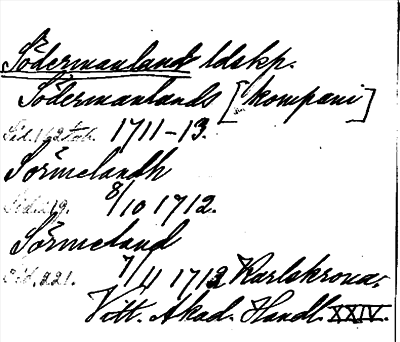 Södermanland ldskp.
Södermanlands [kompani]
Sid. 162 tab. 1711-13.
Sörmelandh
Sid. 19. 8/10 1712.
Sörmeland
Sid. 221. 7/4 1713 Karlskrona.
Vitt. Akad. Handl. XXIV.